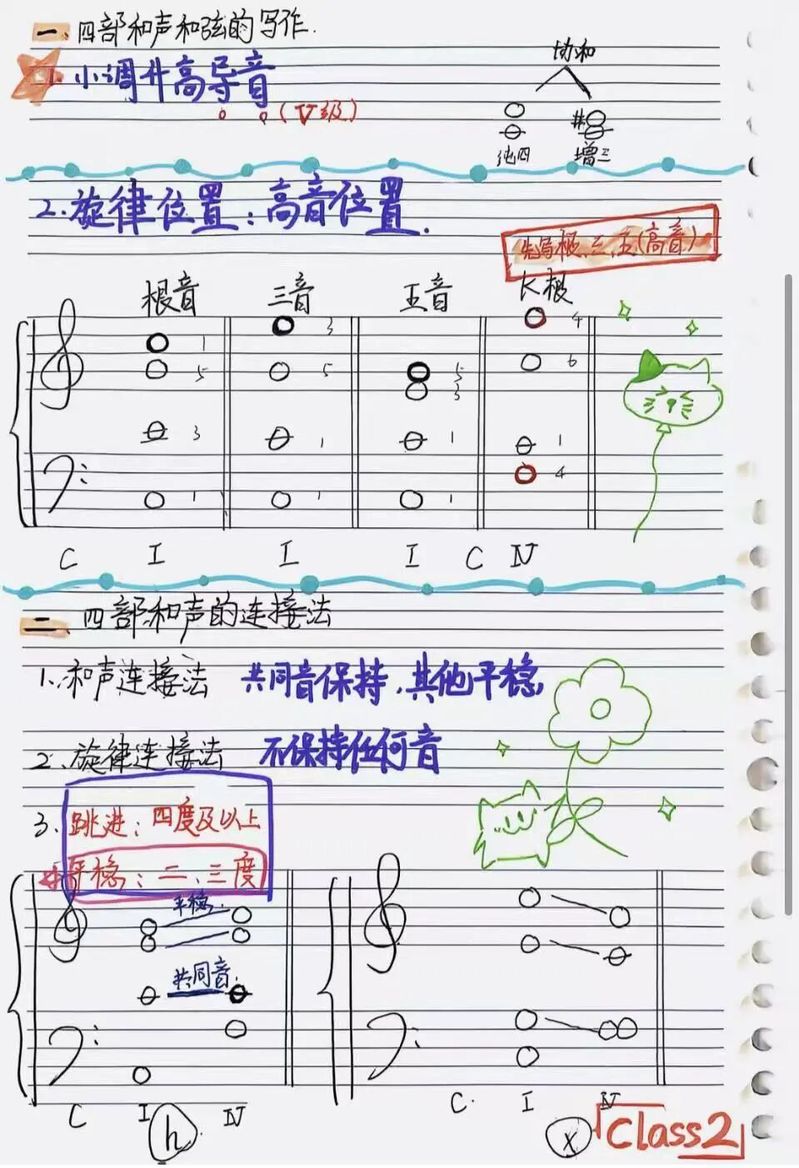 一、四部和声和弦的写作.
1. 小调升高导音
(V级)
协和
纯四 增三
2. 旋律位置：高音位置.
先写根、三、五(高音)
根音 三音 五音 长根
1 3 4
5 5 5 3 6
3 1 1 1 4
1 1 1
C I I I C IV
二、四部和声的连接法
1. 和声连接法 共同音保持，其他平稳
2. 旋律连接法 不保持任何音
3. 跳进：四度及以上
平稳：二、三度
平稳.
共同音.
C I IV C. I IV
h x Class2